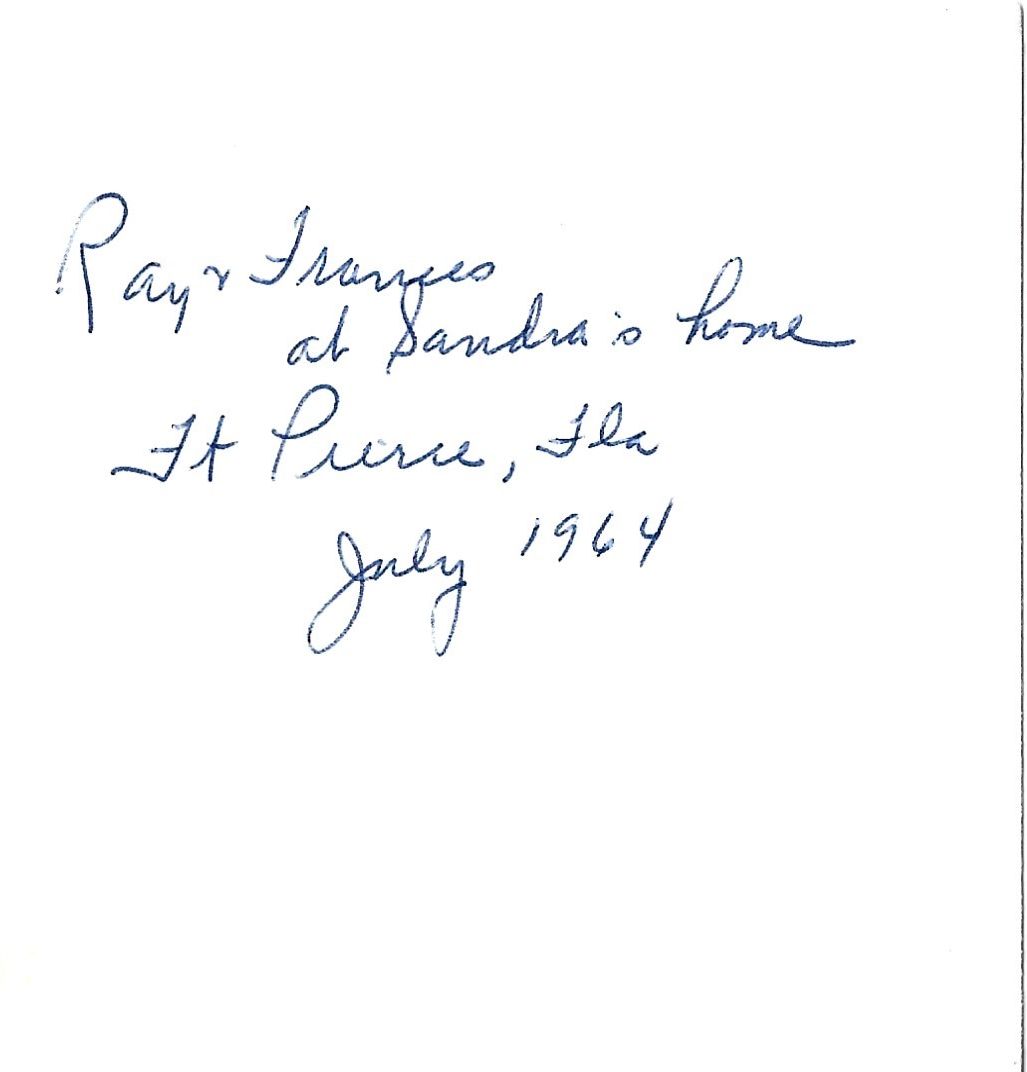 Ray & Frances
at Sandra's home
Ft Pierce, Fla
July 1964